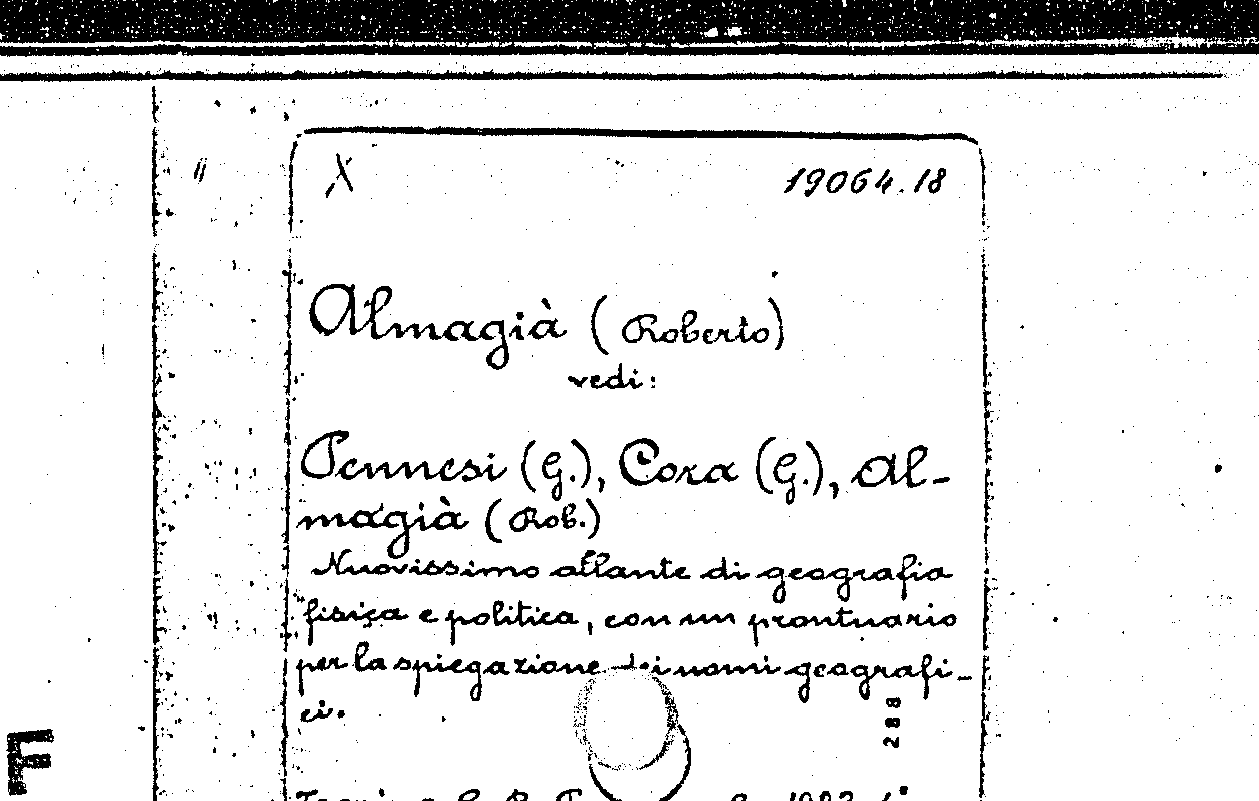 X 19064.18
Almagià (Roberto)
vedi:
Pennesi (G.), Cora (G.), Al-
magià (Rob.)
Nuovissimo atlante di geografia
fisica e politica, con un prontuario
per la spiegazione dei nomi geografi-
ci.
288
F